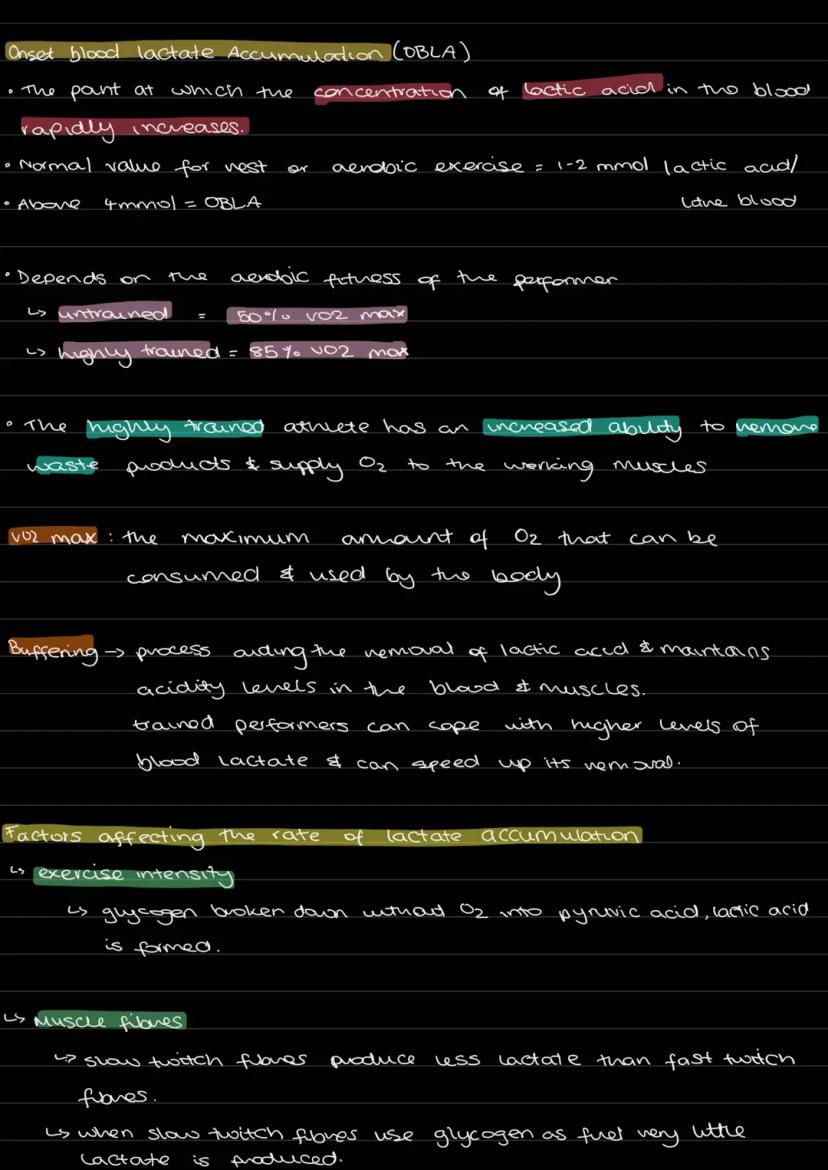 Onset blood lactate Accumulation (OBLA)
• The point at which the concentration of lactic acid in the blood
rapidly increases.
• Normal value for rest or aerobic exercise = 1-2 mmol lactic acid/
• Above 4mmol = OBLA litre blood
• Depends on the aerobic fitness of the performer
↳ untrained = 50% VO2 max
↳ highly trained = 85% VO2 max
• The highly trained athlete has an increased ability to remove
waste products & supply O2 to the working muscles
VO2 max : the maximum amount of O2 that can be
consumed & used by the body
Buffering → process aiding the removal of lactic acid & maintains
acidity levels in the blood & muscles.
trained performers can cope with higher levels of
blood lactate & can speed up its removal.
Factors affecting the rate of lactate accumulation
↳ exercise intensity
↳ glycogen broken down without O2 into pyruvic acid, lactic acid
is formed.
↳ Muscle fibres
↳ slow twitch fibres produce less lactate than fast twitch
fibres.
↳ when slow twitch fibres use glycogen as fuel very little
lactate is produced.